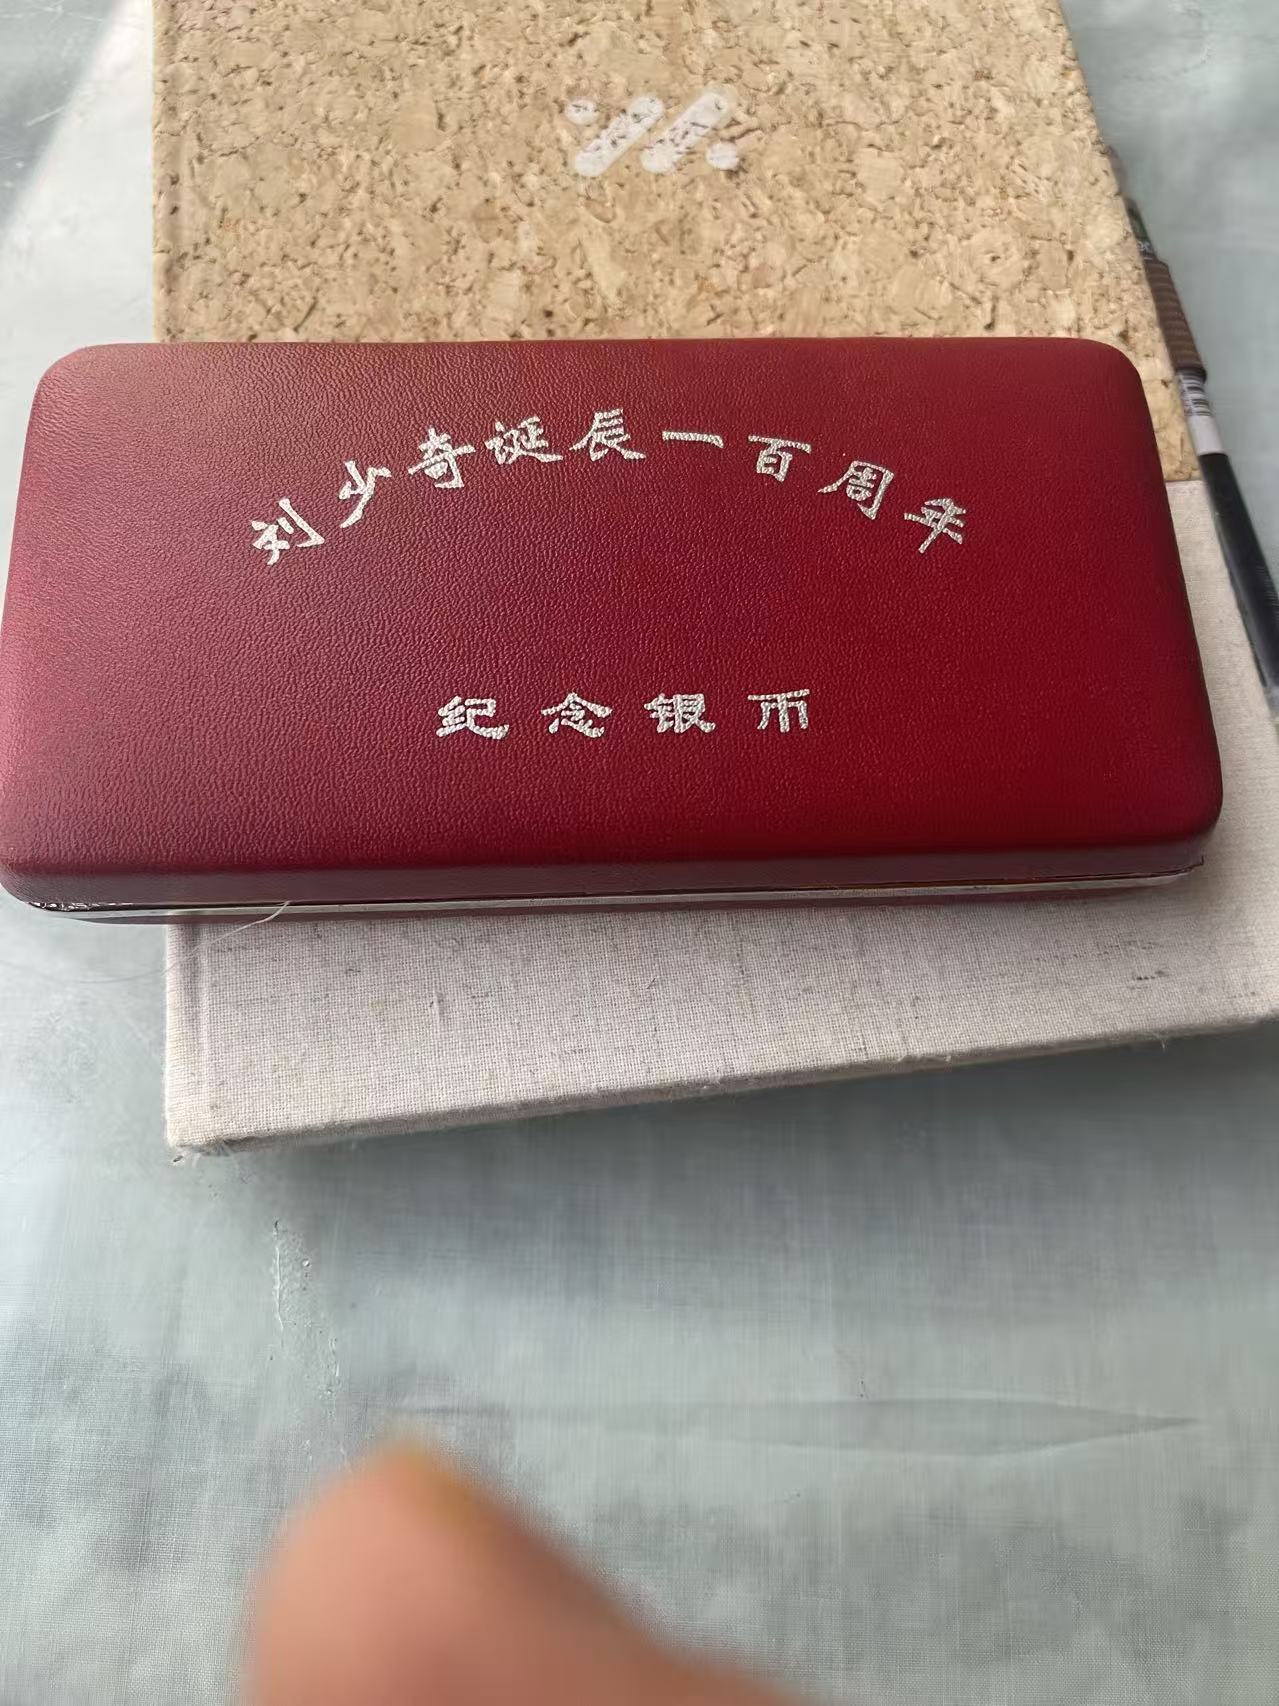 刘少奇诞辰一百周年
纪念银币